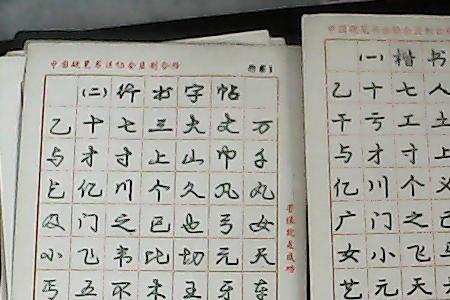 中国硬笔书法协会监制合格
(二)行书字帖
乙十七三大丈万
与才寸上山巾千
乞亿川个久凡丸
及门之已也弓女
小飞韦比切元天
丐五不木王牙车
中国硬笔书法协会监制合格
(一)楷书
乙十七人
干亏工土
与才寸上
亿川个义
广门之己
女小飞马
艺元天